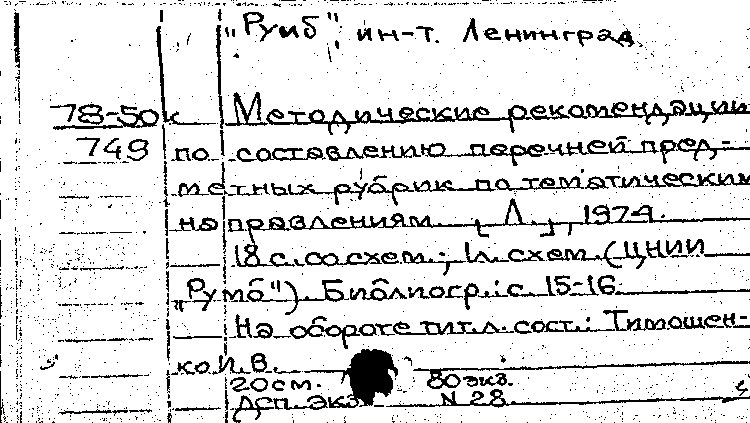 „Румб", ин-т. Ленинград
78-50к Методические рекомендации
749 по составлению перечней пред-
метных рубрик по тематическим
направлениям. [Л.], 1974.
18 с. со схем.; 1 л. схем. (ЦНИИ
„Румб"). Библиогр.: с. 15-16.
На обороте тит. л. сост.: Тимошен-
ко И. В.
20 см. 80 экз.
Дсп. экз. N 28.